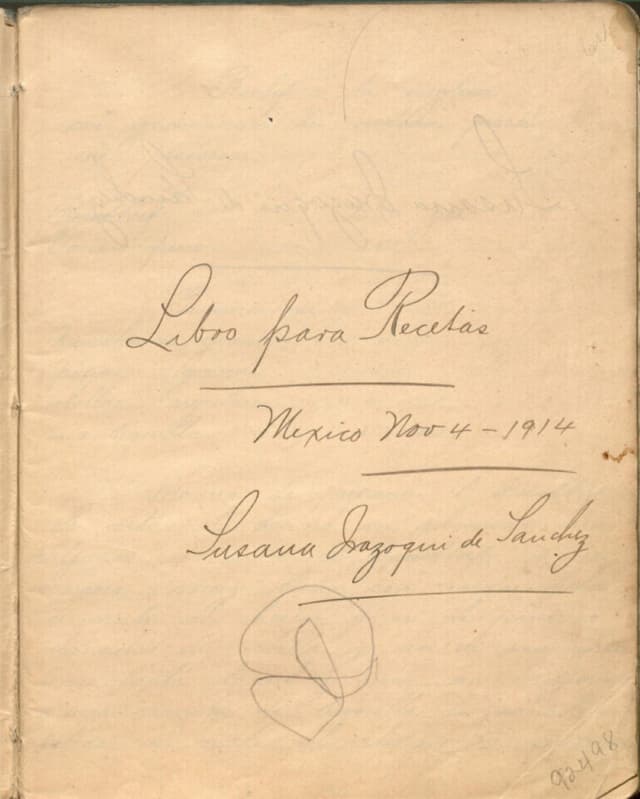 Libro para Recetas
Mexico Nov 4 - 1914
Susana Irazoqui de Sanchez
92498